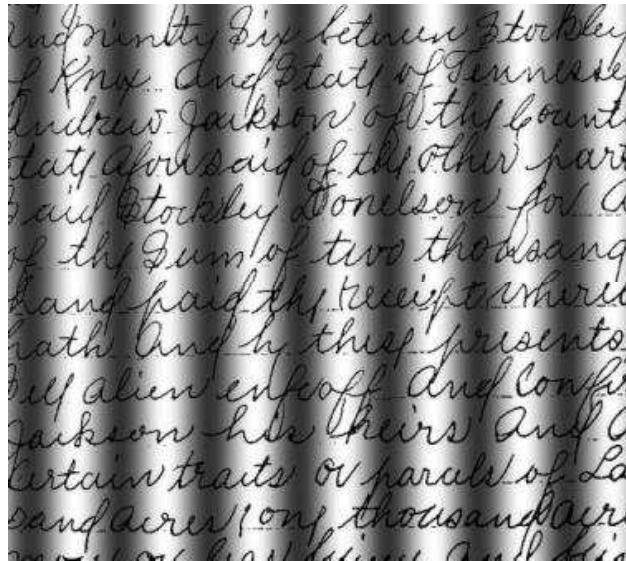 and ninity Six between Stockley
of Knox And State of Tennesse
Andrew Jackson of the Count
tate aforesaid of the other par
Said Stockley Donelson for a
of the Sum of two thousand
hand paid the receipt where
hath And by these presents
Sell alien enfeoff And Confi
Jackson his heirs And A
certain traits or parcels of La
sand acres one thousand acre
more or less being And bei